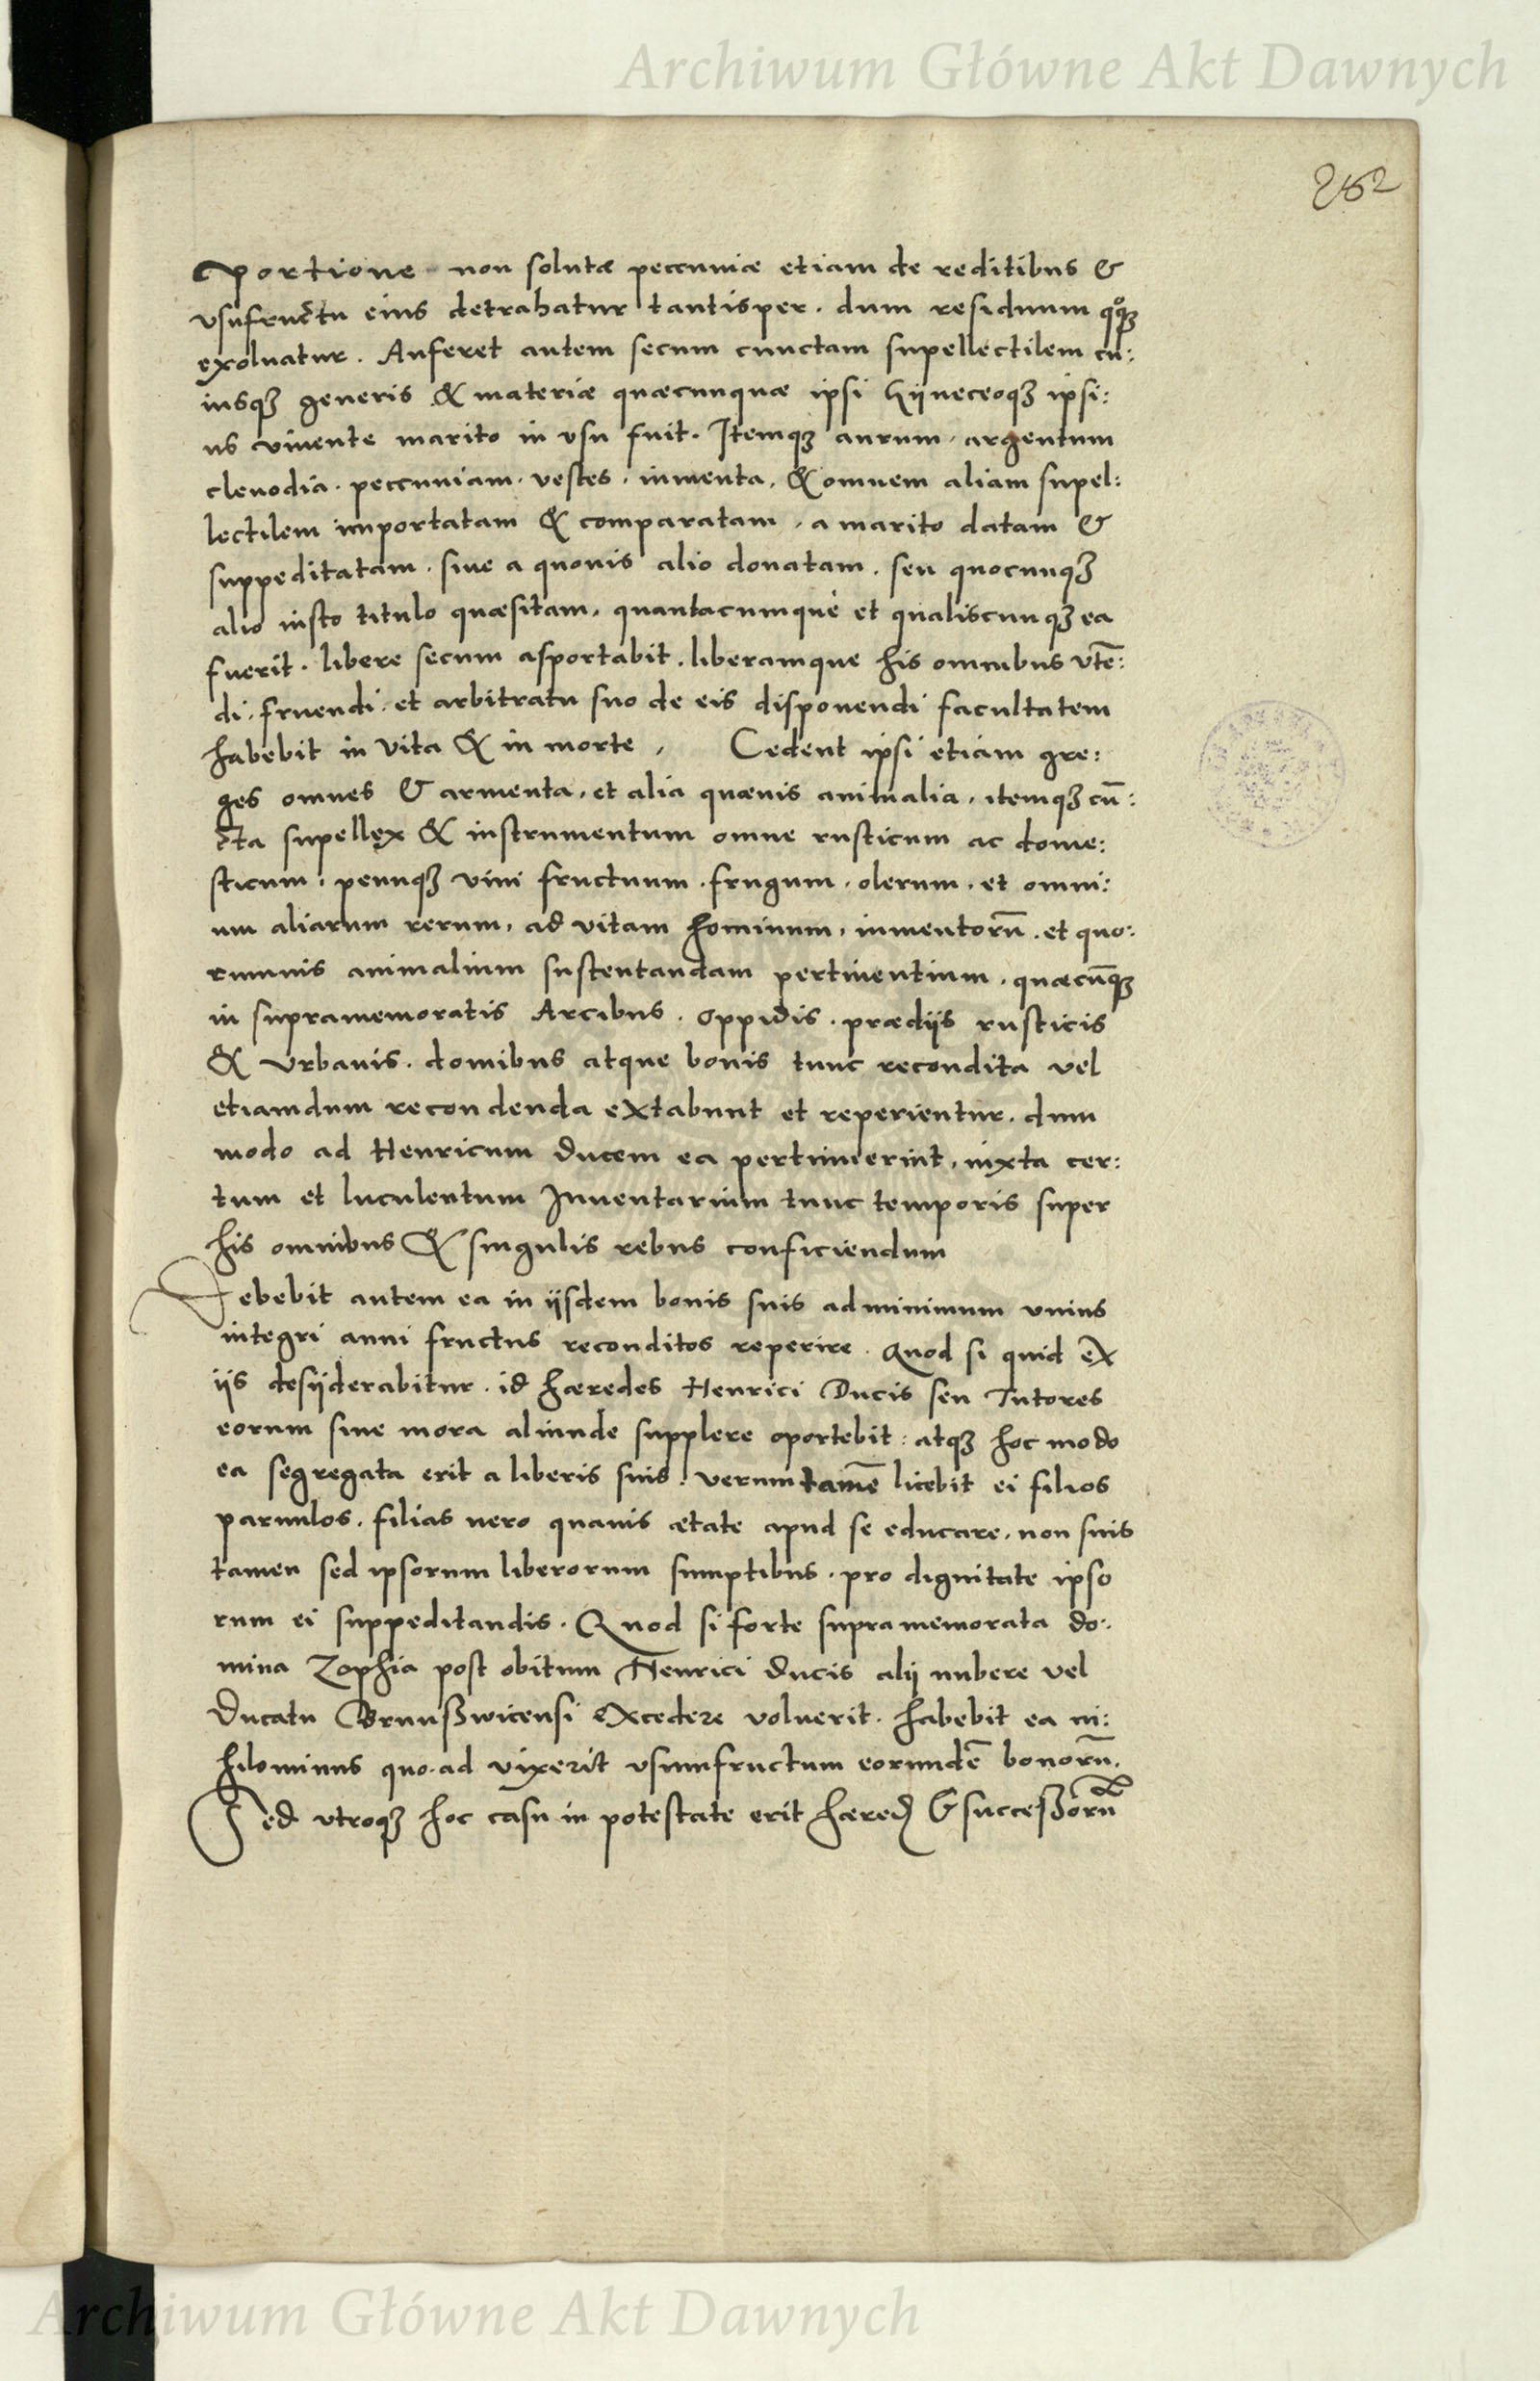 Archiwum Główne Akt Dawnych
252
portione non solutæ peccuniæ etiam de reditibus &
vsufructu eius detrahatur tantisper. dum residuum qͦqȝ
exoluatur. Auferet autem secum cunctam supellectilem cu:
iusqȝ generis & materiæ quæcunquæ ipsi Gijneceoqȝ ipsi:
us viuente marito in vsu fuit. Itemqȝ aurum. argentum
clenodia. peccuniam. vestes. iumenta. & omnem aliam supel:
lectilem importatam & comparatam. a marito datam &
suppeditatam. siue a quouis alio donatam. seu quocunqȝ
alio iusto titulo quæsitam. quantacumque et qualiscunqȝ ea
fuerit. libere secum asportabit. liberamque his omnibus vtē:
di. fruendi. et arbitratu suo de eis disponendi facultatem
habebit in vita & in morte. Cedent ipsi etiam gre:
ges omnes & armenta. et alia quæuis animalia. itemqȝ cū:
cta supellex & instrumentum omne rusticum ac dome:
sticum. penuqȝ vini fructuum. frugum. olerum. et omni:
um aliarum rerum. ad vitam hominum. iumentorū. et quo:
rumuis animalium sustentandam pertinentium. quæcūqȝ
in supramemoratis Arcibus. oppidis. prædijs rusticis
& vrbanis. domibus atque bonis tunc recondita vel
etiamdum recondenda extabunt et reperientur. dum
modo ad Henricum Ducem ea pertinuerint. iuxta cer:
tum et luculentum Inuentarium tunc temporis super
his omnibus & singulis rebus conficiendum
Debebit autem ea in ijsdem bonis suis adminimum vnius
integri anni fructus reconditos reperire. Quod si quid ex
ijs desijderabitur. id hæredes Henrici Ducis seu Tutores
eorum sine mora aliunde supplere oportebit: atqȝ hoc modo
ea segregata erit a liberis suis. verumtamē licebit ei filios
paruulos. filias uero quauis ætate apud se educare. non suis
tamen sed ipsorum liberorum sumptibus. pro dignitate ipso
rum ei suppeditandis. Quod si forte supramemorata do:
mina Zophia post obitum Henrici ducis alij nubere vel
Ducatu Brunßwicensi excedere voluerit. habebit ea ni:
hilominus quo.ad vixerit vsumfructum eorundē bonorū.
Sed vtroqȝ hoc casu in potestate erit hæred & succeßorū
Archiwum Główne Akt Dawnych